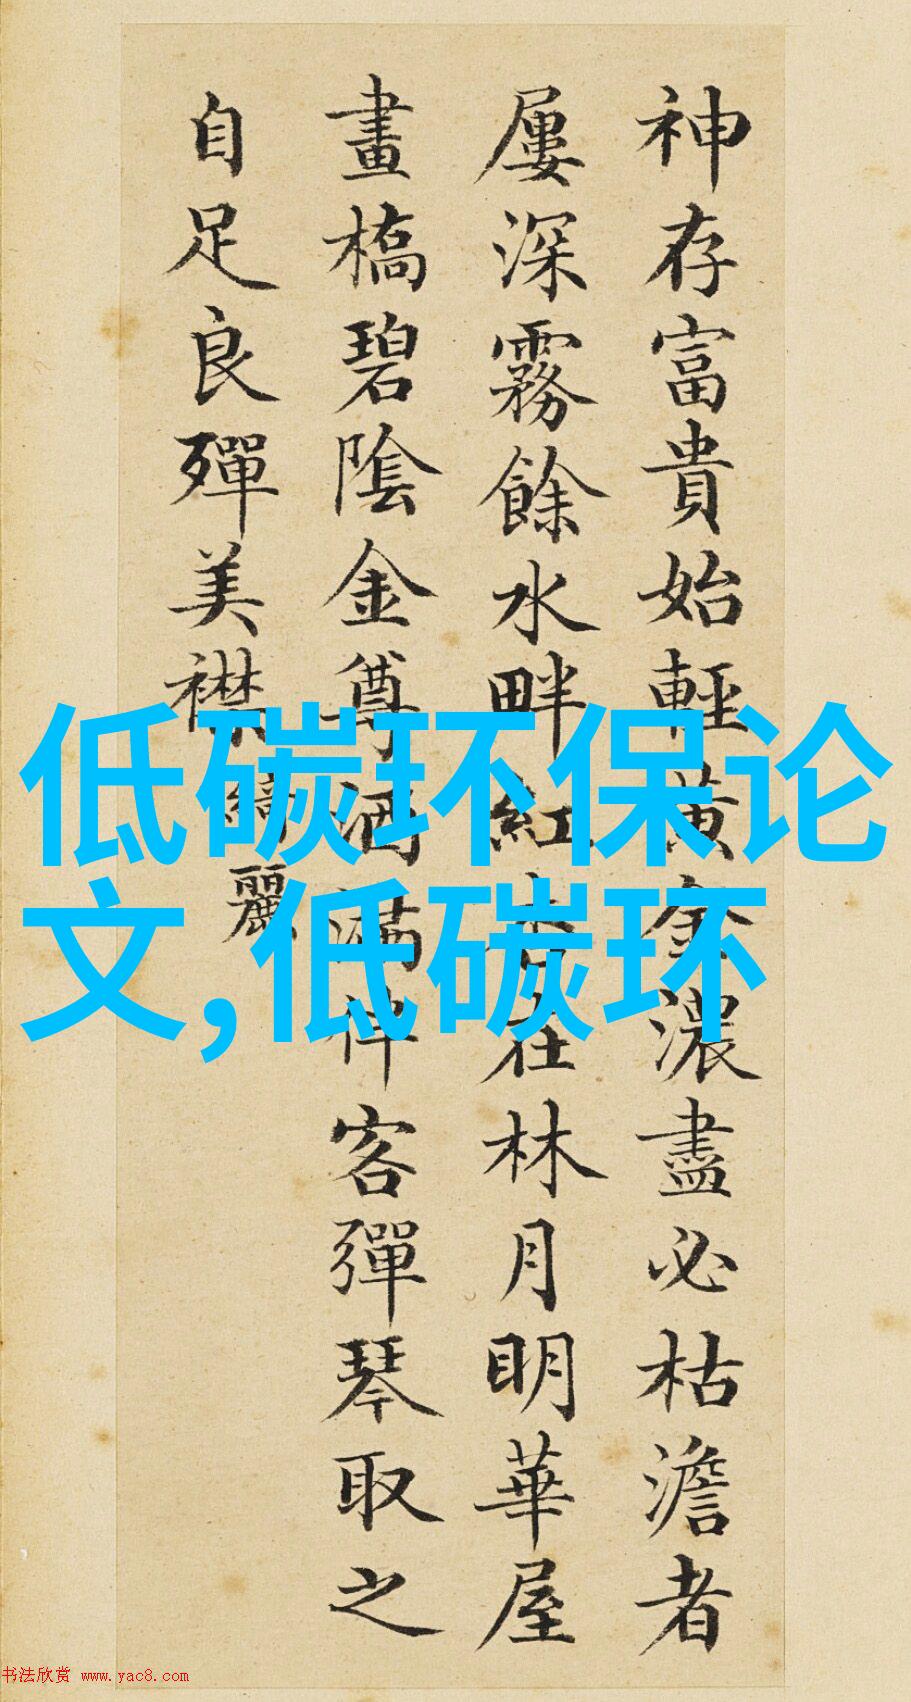 神存富貴始輕黃金濃盡必枯澹者
屢深霧餘水畔紅杏在林月明華屋
畫橋碧陰金尊酒滿伴客彈琴取之
自足良殫美襟綺麗
低碳环保论
文,低碳环
书法欣赏 www.yac8.com